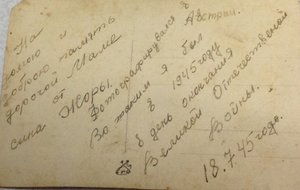 На
долгую и
добрую память
дорогой Маме
от
сына Жоры.
Фотографировался в Австрии.
Во таким я был
в 1945 году
в день окончания
Великой Отечественной
Войны.
18.7.45 года.